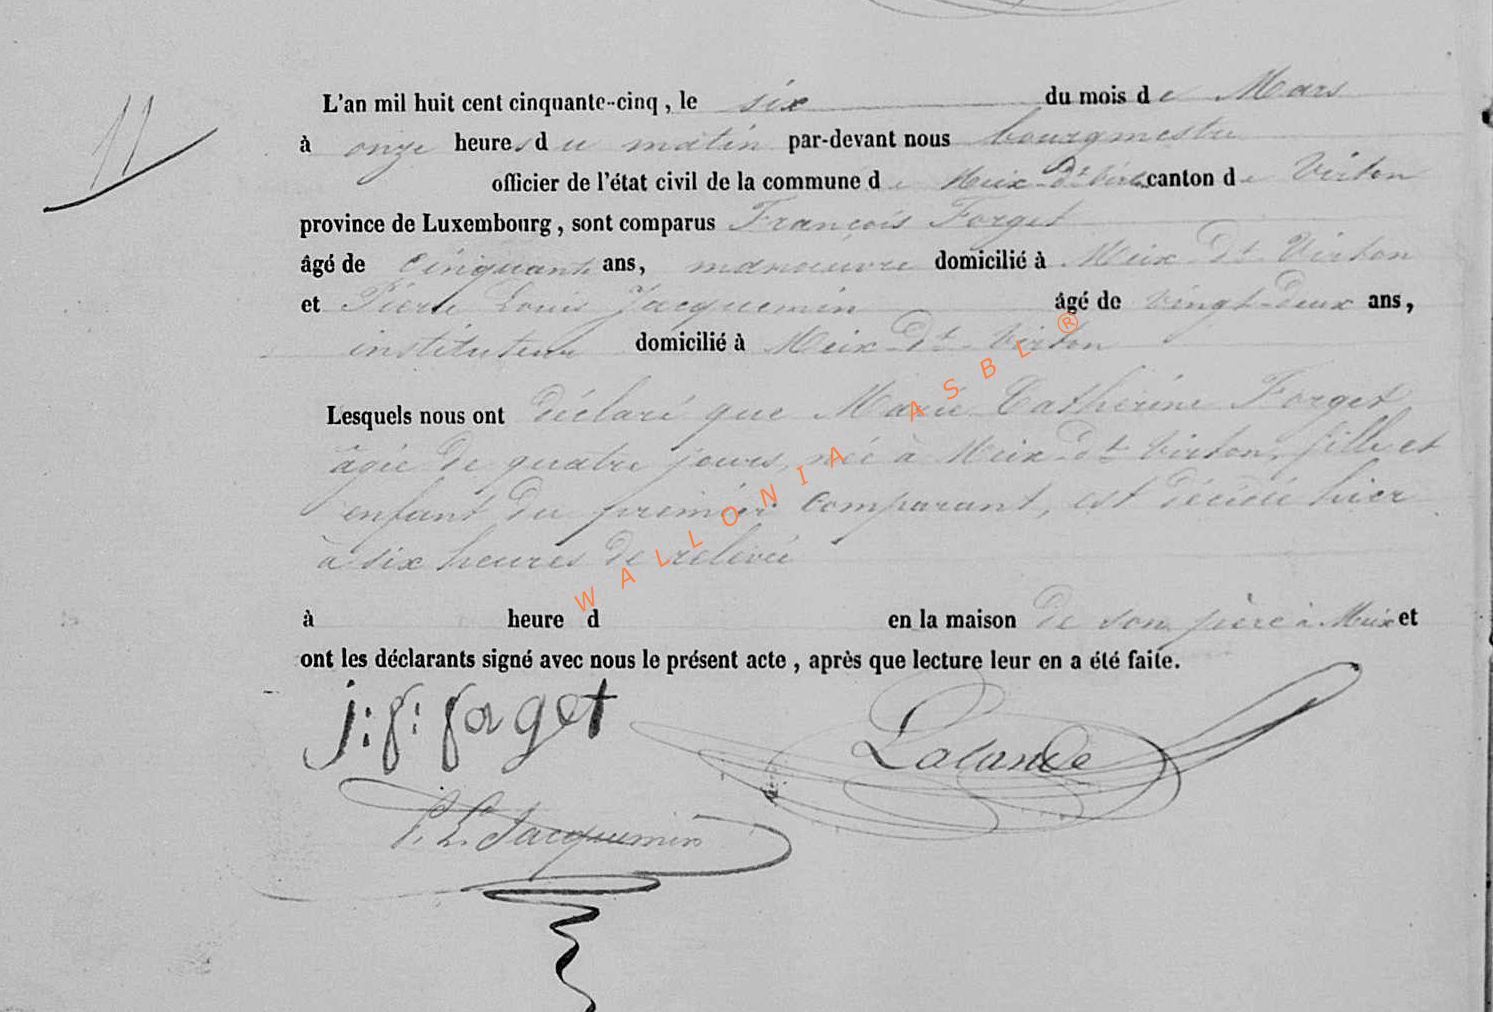 11
L'an mil huit cent cinquante-cinq, le six du mois de Mars
à onze heures du matin par-devant nous bourgmestre
officier de l'état civil de la commune de Meix-dt-Virton canton de Virton
province de Luxembourg, sont comparus François Forget
âgé de cinquante ans, manoeuvre domicilié à Meix-dt-Virton
et Pierre Louis Jacquemin âgé de vingt-deux ans,
instituteur domicilié à Meix-dt-Virton
Lesquels nous ont déclaré que Marie Catherine Forget
âgée de quatre jours, née à Meix-dt-Virton, fille et
enfant du premier comparant, est décédée hier
à six heures de relevée
à heure d en la maison de son père à Meix et
ont les déclarants signé avec nous le présent acte, après que lecture leur en a été faite.
j: f: forget
Lalande
P. L. Jacquemin
WALLONIA ASBL ®